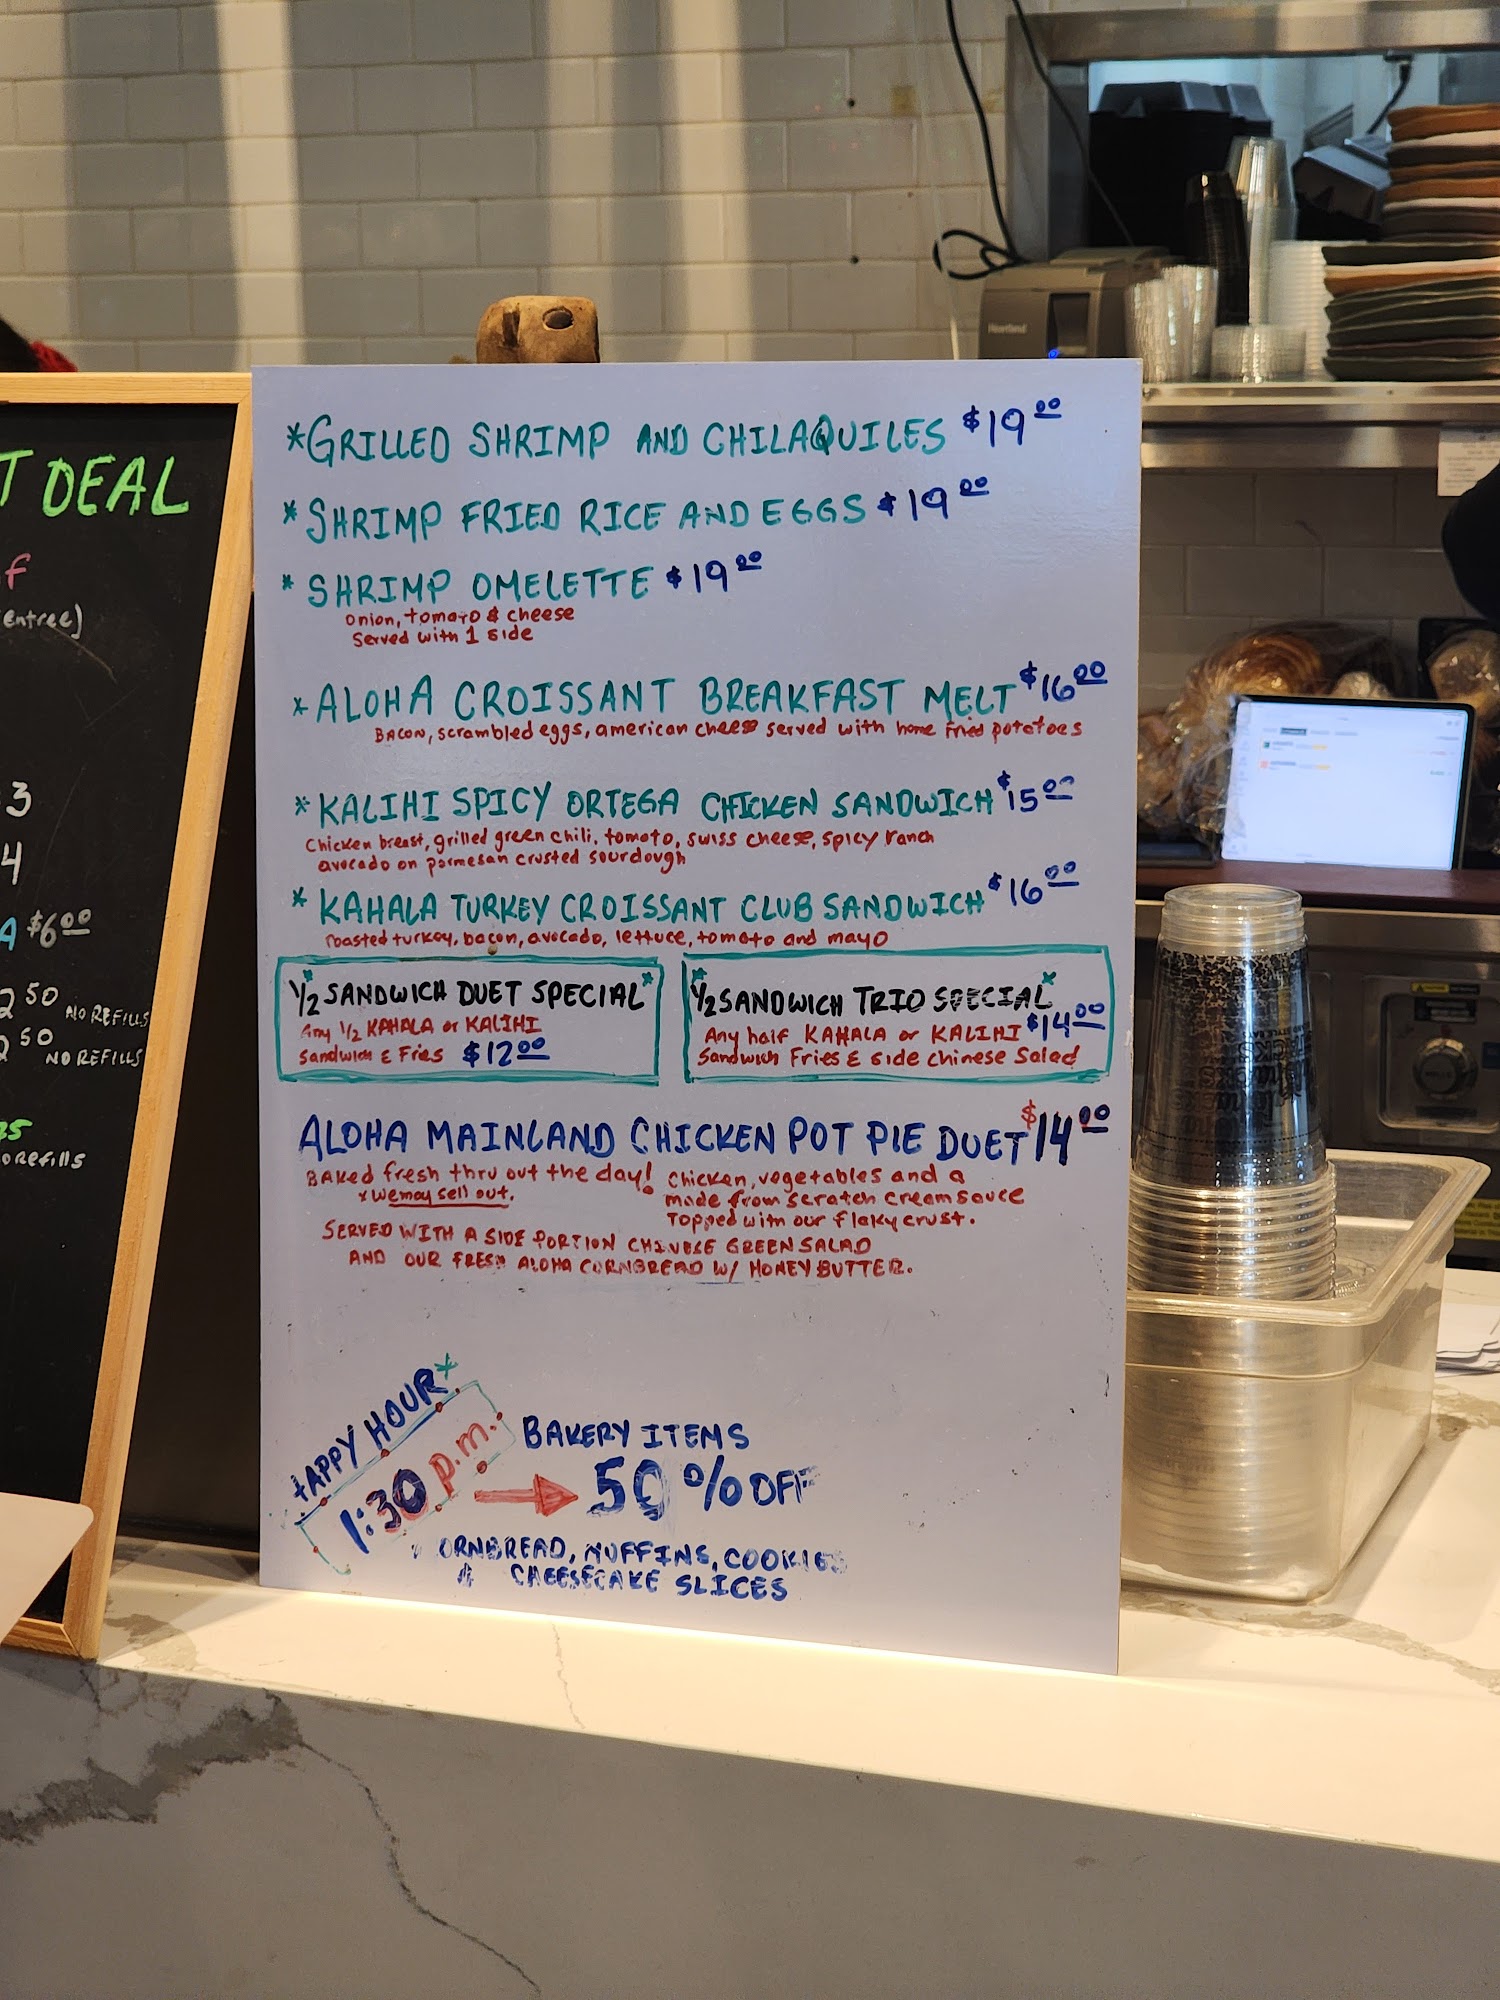 T DEAL
F
entree)
3
4
A $6.00
2 50 NO REFILLS
2 50 NO REFILLS
o refills
*GRILLED SHRIMP AND CHILAQUILES $19.00
*SHRIMP FRIED RICE AND EGGS $19.00
*SHRIMP OMELETTE $19.00
onion, tomato & cheese
Served with 1 side
*ALOHA CROISSANT BREAKFAST MELT $16.00
BACON, scrambled eggs, american cheese served with home fried potatoes
*KALIHI SPICY ORTEGA CHICKEN SANDWICH $15.00
Chicken breast, grilled green chili, tomato, swiss cheese, spicy ranch
avocado on parmesan crusted sourdough
*KAHALA TURKEY CROISSANT CLUB SANDWICH $16.00
roasted turkey, bacon, avocado, lettuce, tomato and mayo
1/2 SANDWICH DUET SPECIAL*
Any 1/2 KAHALA or KALIHI
Sandwich & Fries $12.00
1/2 SANDWICH TRIO SPECIAL*
Any half KAHALA or KALIHI $14.00
Sandwich Fries & side Chinese Salad
ALOHA MAINLAND CHICKEN POT PIE DUET $14.00
BAKED fresh thru out the day!
*We may sell out.
Chicken, vegetables and a
made from scratch cream sauce
Topped with our flaky crust.
SERVED WITH A SIDE PORTION CHINESE GREEN SALAD
AND OUR FRESH ALOHA CORNBREAD W/ HONEY BUTTER.
HAPPY HOUR*
1:30 p.m.
BAKERY ITEMS
50% OFF
ORNBREAD, MUFFINS, COOKIES
& CHEESECAKE SLICES
Heartland